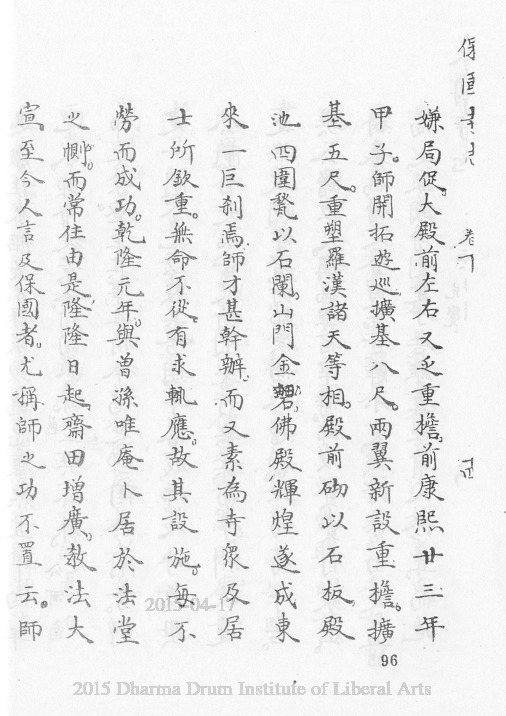 保國寺志 卷下
嫌局促。大殿前左右又乏重擔。前康熙廿三年
甲子。師開拓遊巡。擴基八尺。兩翼新設重擔。擴
基五尺。重塑羅漢諸天等相。殿前砌以石板。殿
池四圍甃以石闌。山門金碧。佛殿輝煌。遂成東
來一巨刹焉。師才甚幹辦。而又素為寺眾及居
士所欽重。無命不從。有求輒應。故其設施。每不
勞而成功。乾隆元年。與曾孫唯庵卜居於法堂
之側。而常住由是隆隆日起。齋田增廣。教法大
宣。至今人言及保國者。尤稱師之功不置云。師
96
2015-04-17
2015 Dharma Drum Institute of Liberal Arts